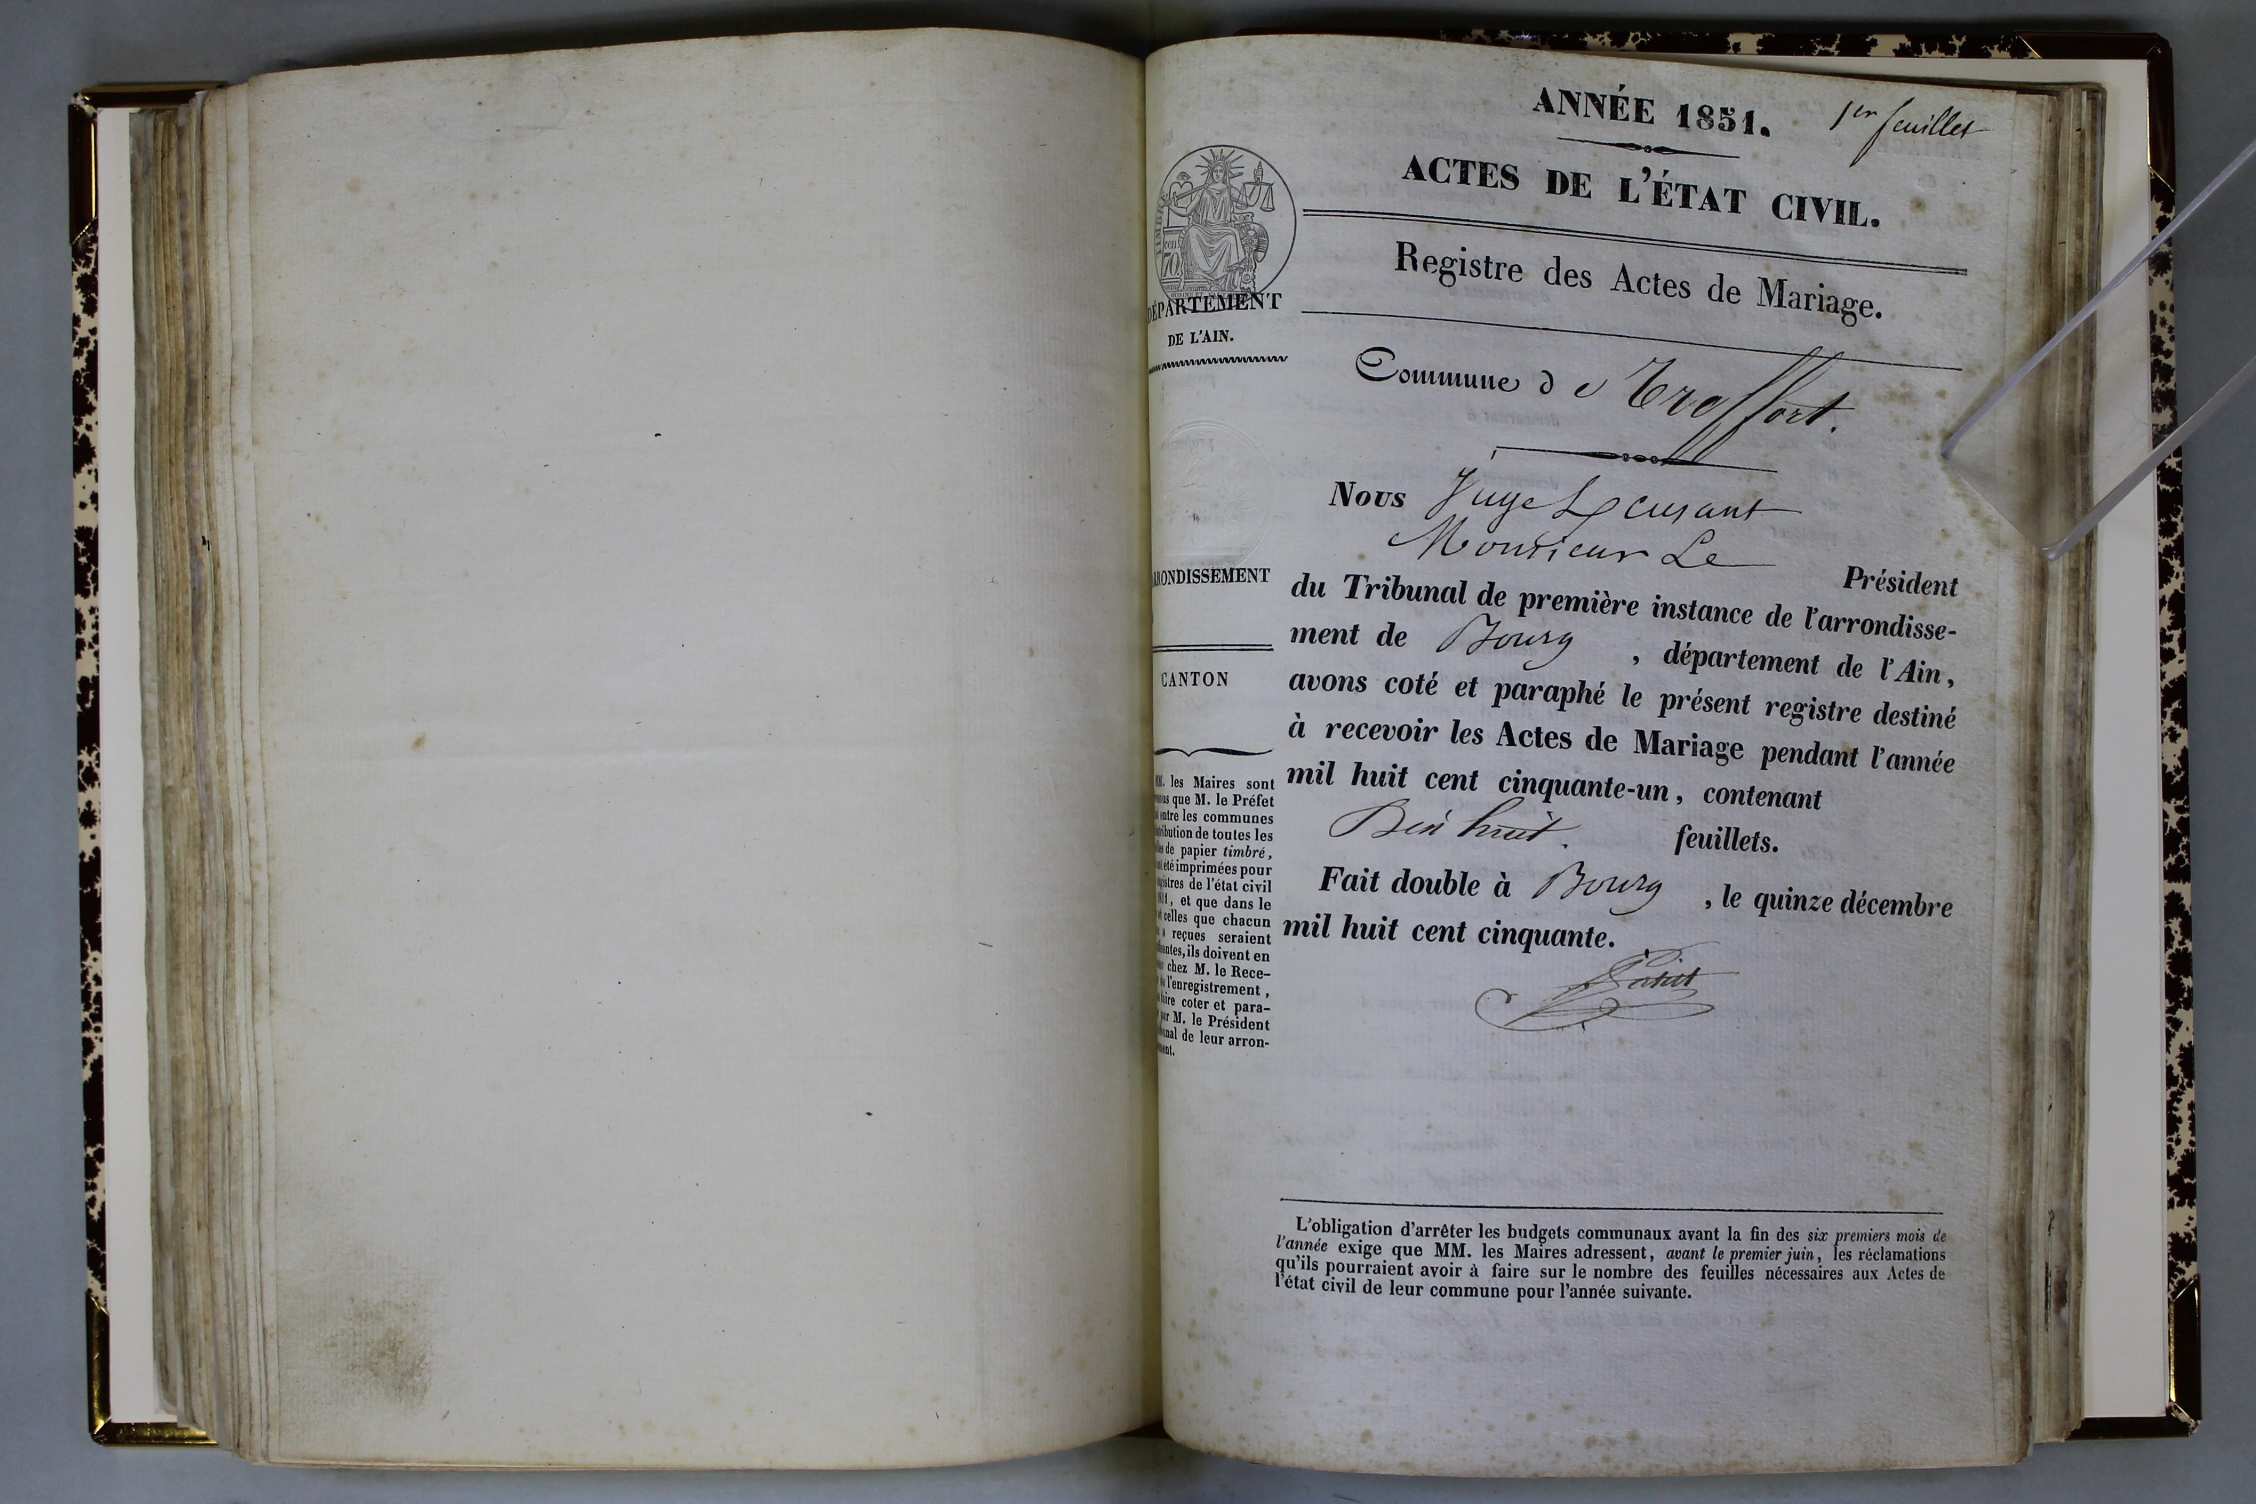 ANNÉE 1851.
1er feuillet
ACTES DE L'ÉTAT CIVIL.
Registre des Actes de Mariage.
TIMBRE
70
DÉPARTEMENT
DE L'AIN.
Commune de Treffort.
Nous Juge
Monsieur Le Président
du Tribunal de première instance de l'arrondisse-
ment de Bourg, département de l'Ain,
avons coté et paraphé le présent registre destiné
à recevoir les Actes de Mariage pendant l'année
mil huit cent cinquante-un, contenant
Dix huit. feuillets.
Fait double à Bourg, le quinze décembre
mil huit cent cinquante.
RRONDISSEMENT
CANTON
MM. les Maires sont
que M. le Préfet
entre les communes
tribution de toutes les
de papier timbré,
été imprimées pour
gistres de l'état civil
, et que dans le
celles que chacun
reçues seraient
, ils doivent en
chez M. le Rece-
l'enregistrement,
faire coter et para-
par M. le Président
bunal de leur arron-
ment.
L'obligation d'arrêter les budgets communaux avant la fin des six premiers mois de
l'année exige que MM. les Maires adressent, avant le premier juin, les réclamations
qu'ils pourraient avoir à faire sur le nombre des feuilles nécessaires aux Actes de
l'état civil de leur commune pour l'année suivante.